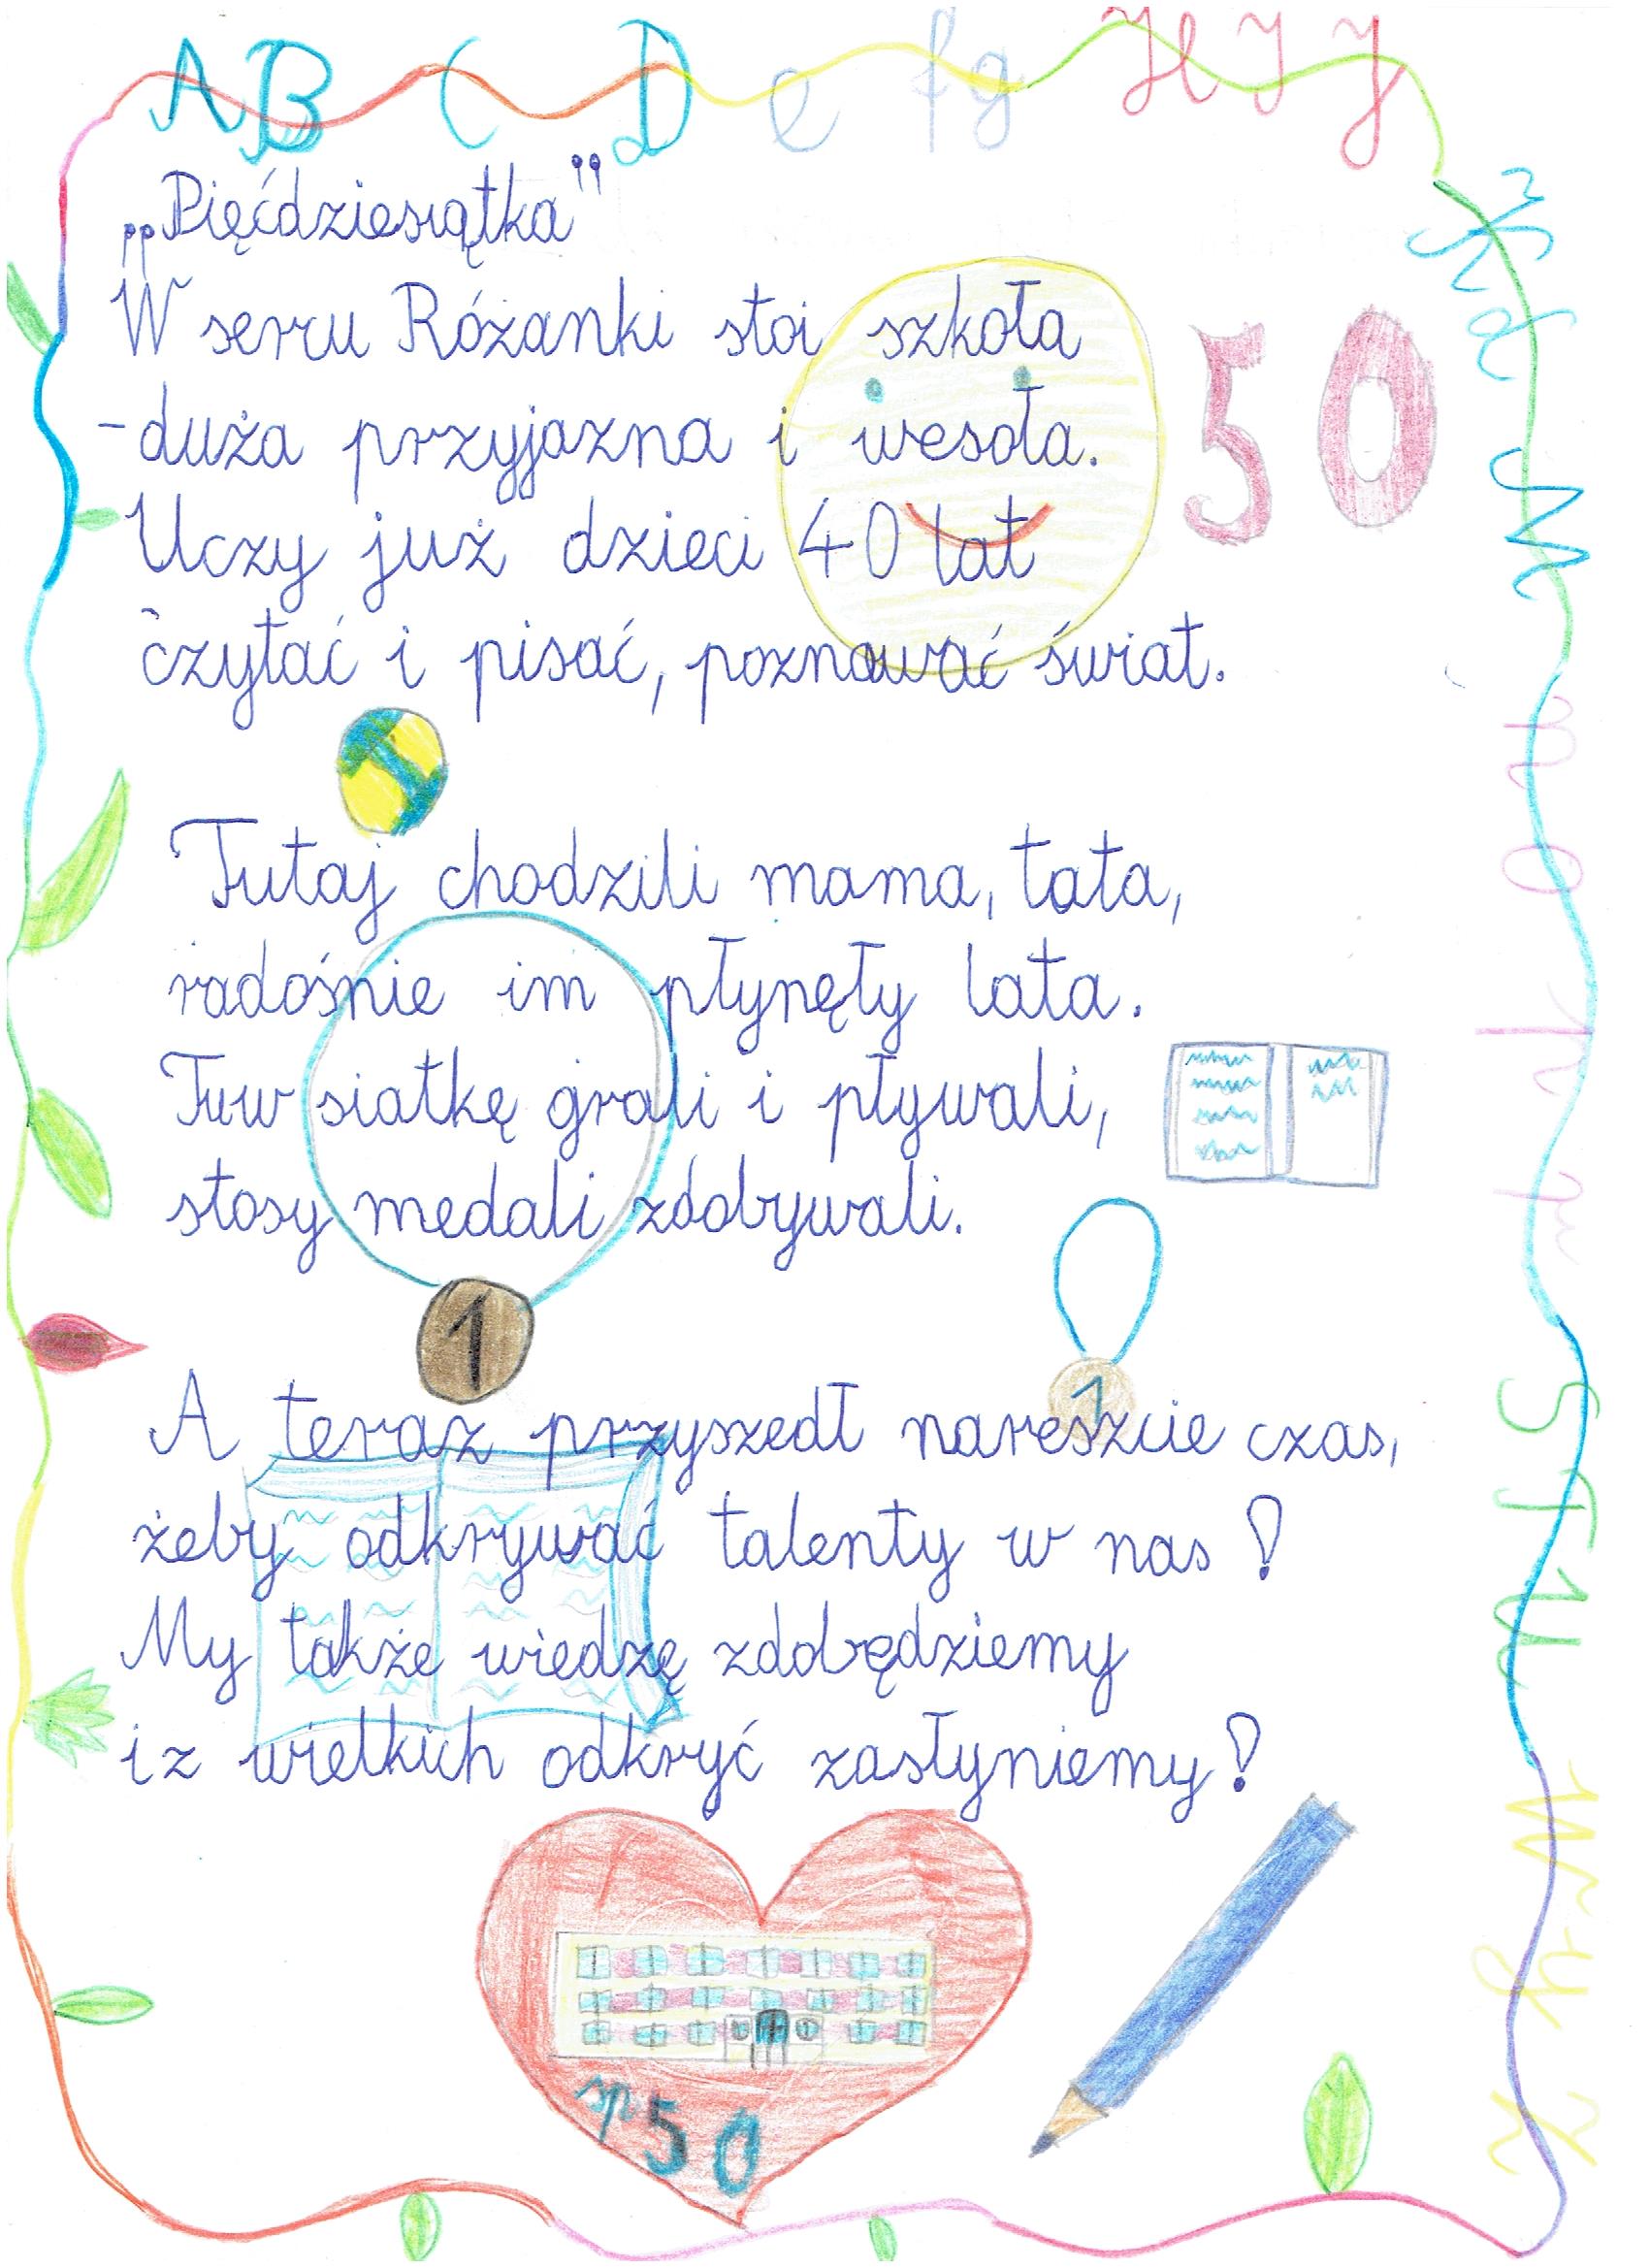 A B C D e f g H I J
„Pięćdziesiątka"
W sercu Różanki stoi szkoła
50
-duża przyjazna i wesoła.
Uczy już dzieci 40 lat
czytać i pisać, poznawać świat.
Tutaj chodzili mama, tata,
radośnie im płynęły lata.
Tu w siatkę grali i pływali,
stosy medali zdobywali.
1
1
A teraz przyszedł nareszcie czas,
żeby odkrywać talenty w nas!
My także wiedzę zdobędziemy
i z wielkich odkryć zasłyniemy!
sp 50